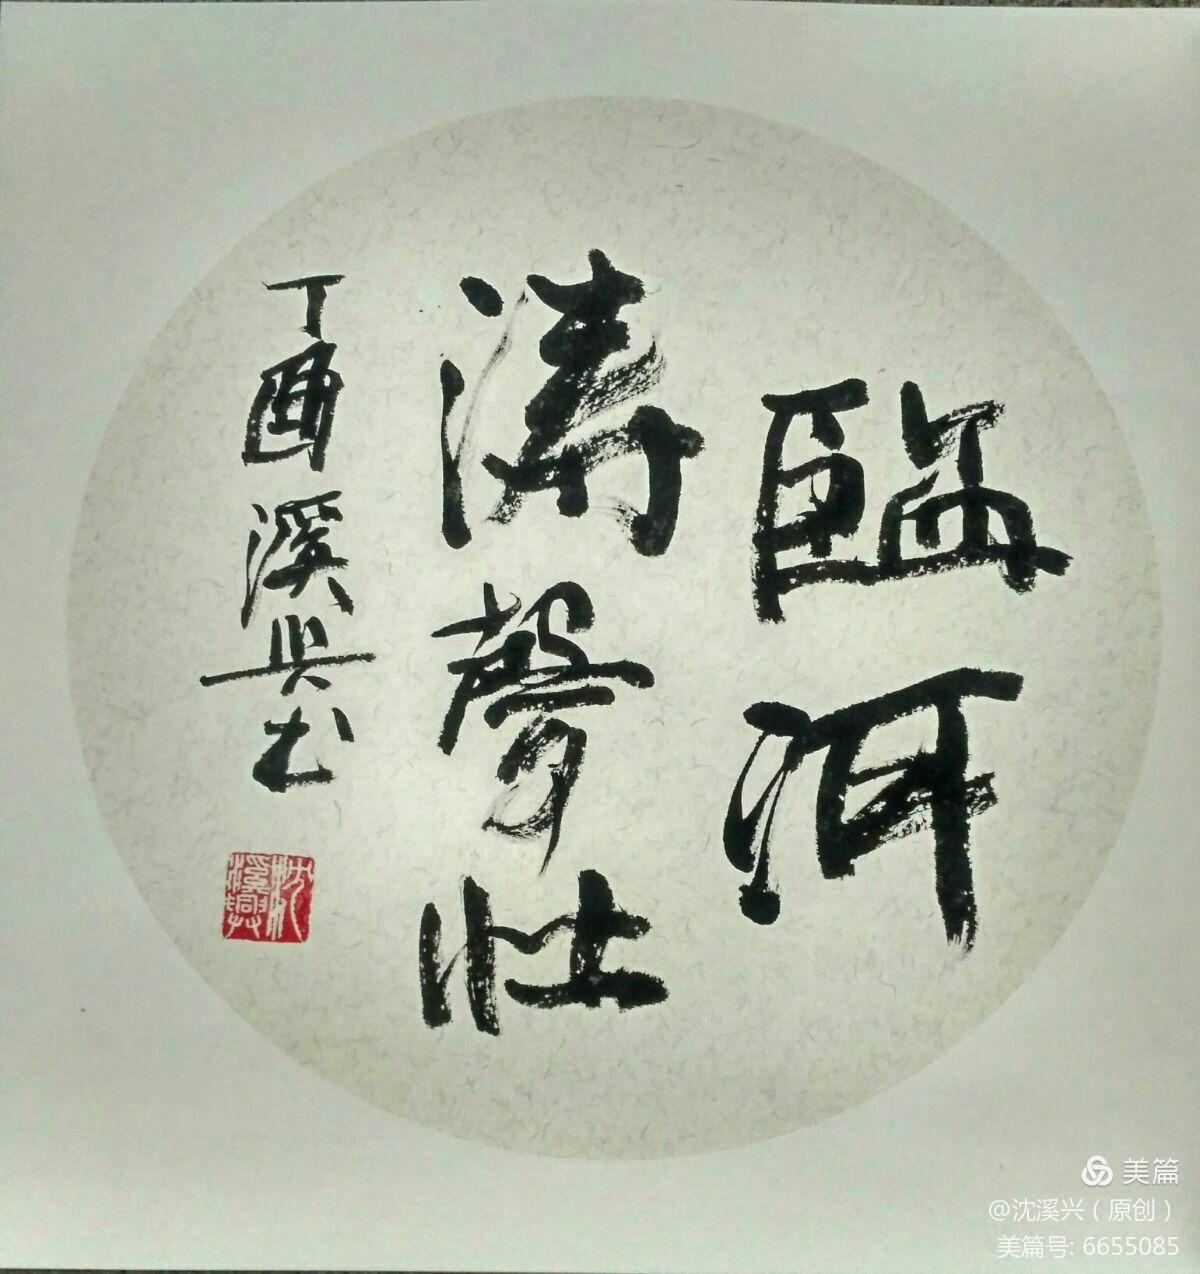 臨洱
濤聲壯
丁酉溪兴书
沈溪興
美篇
@沈溪兴（原创）
美篇号: 6655085